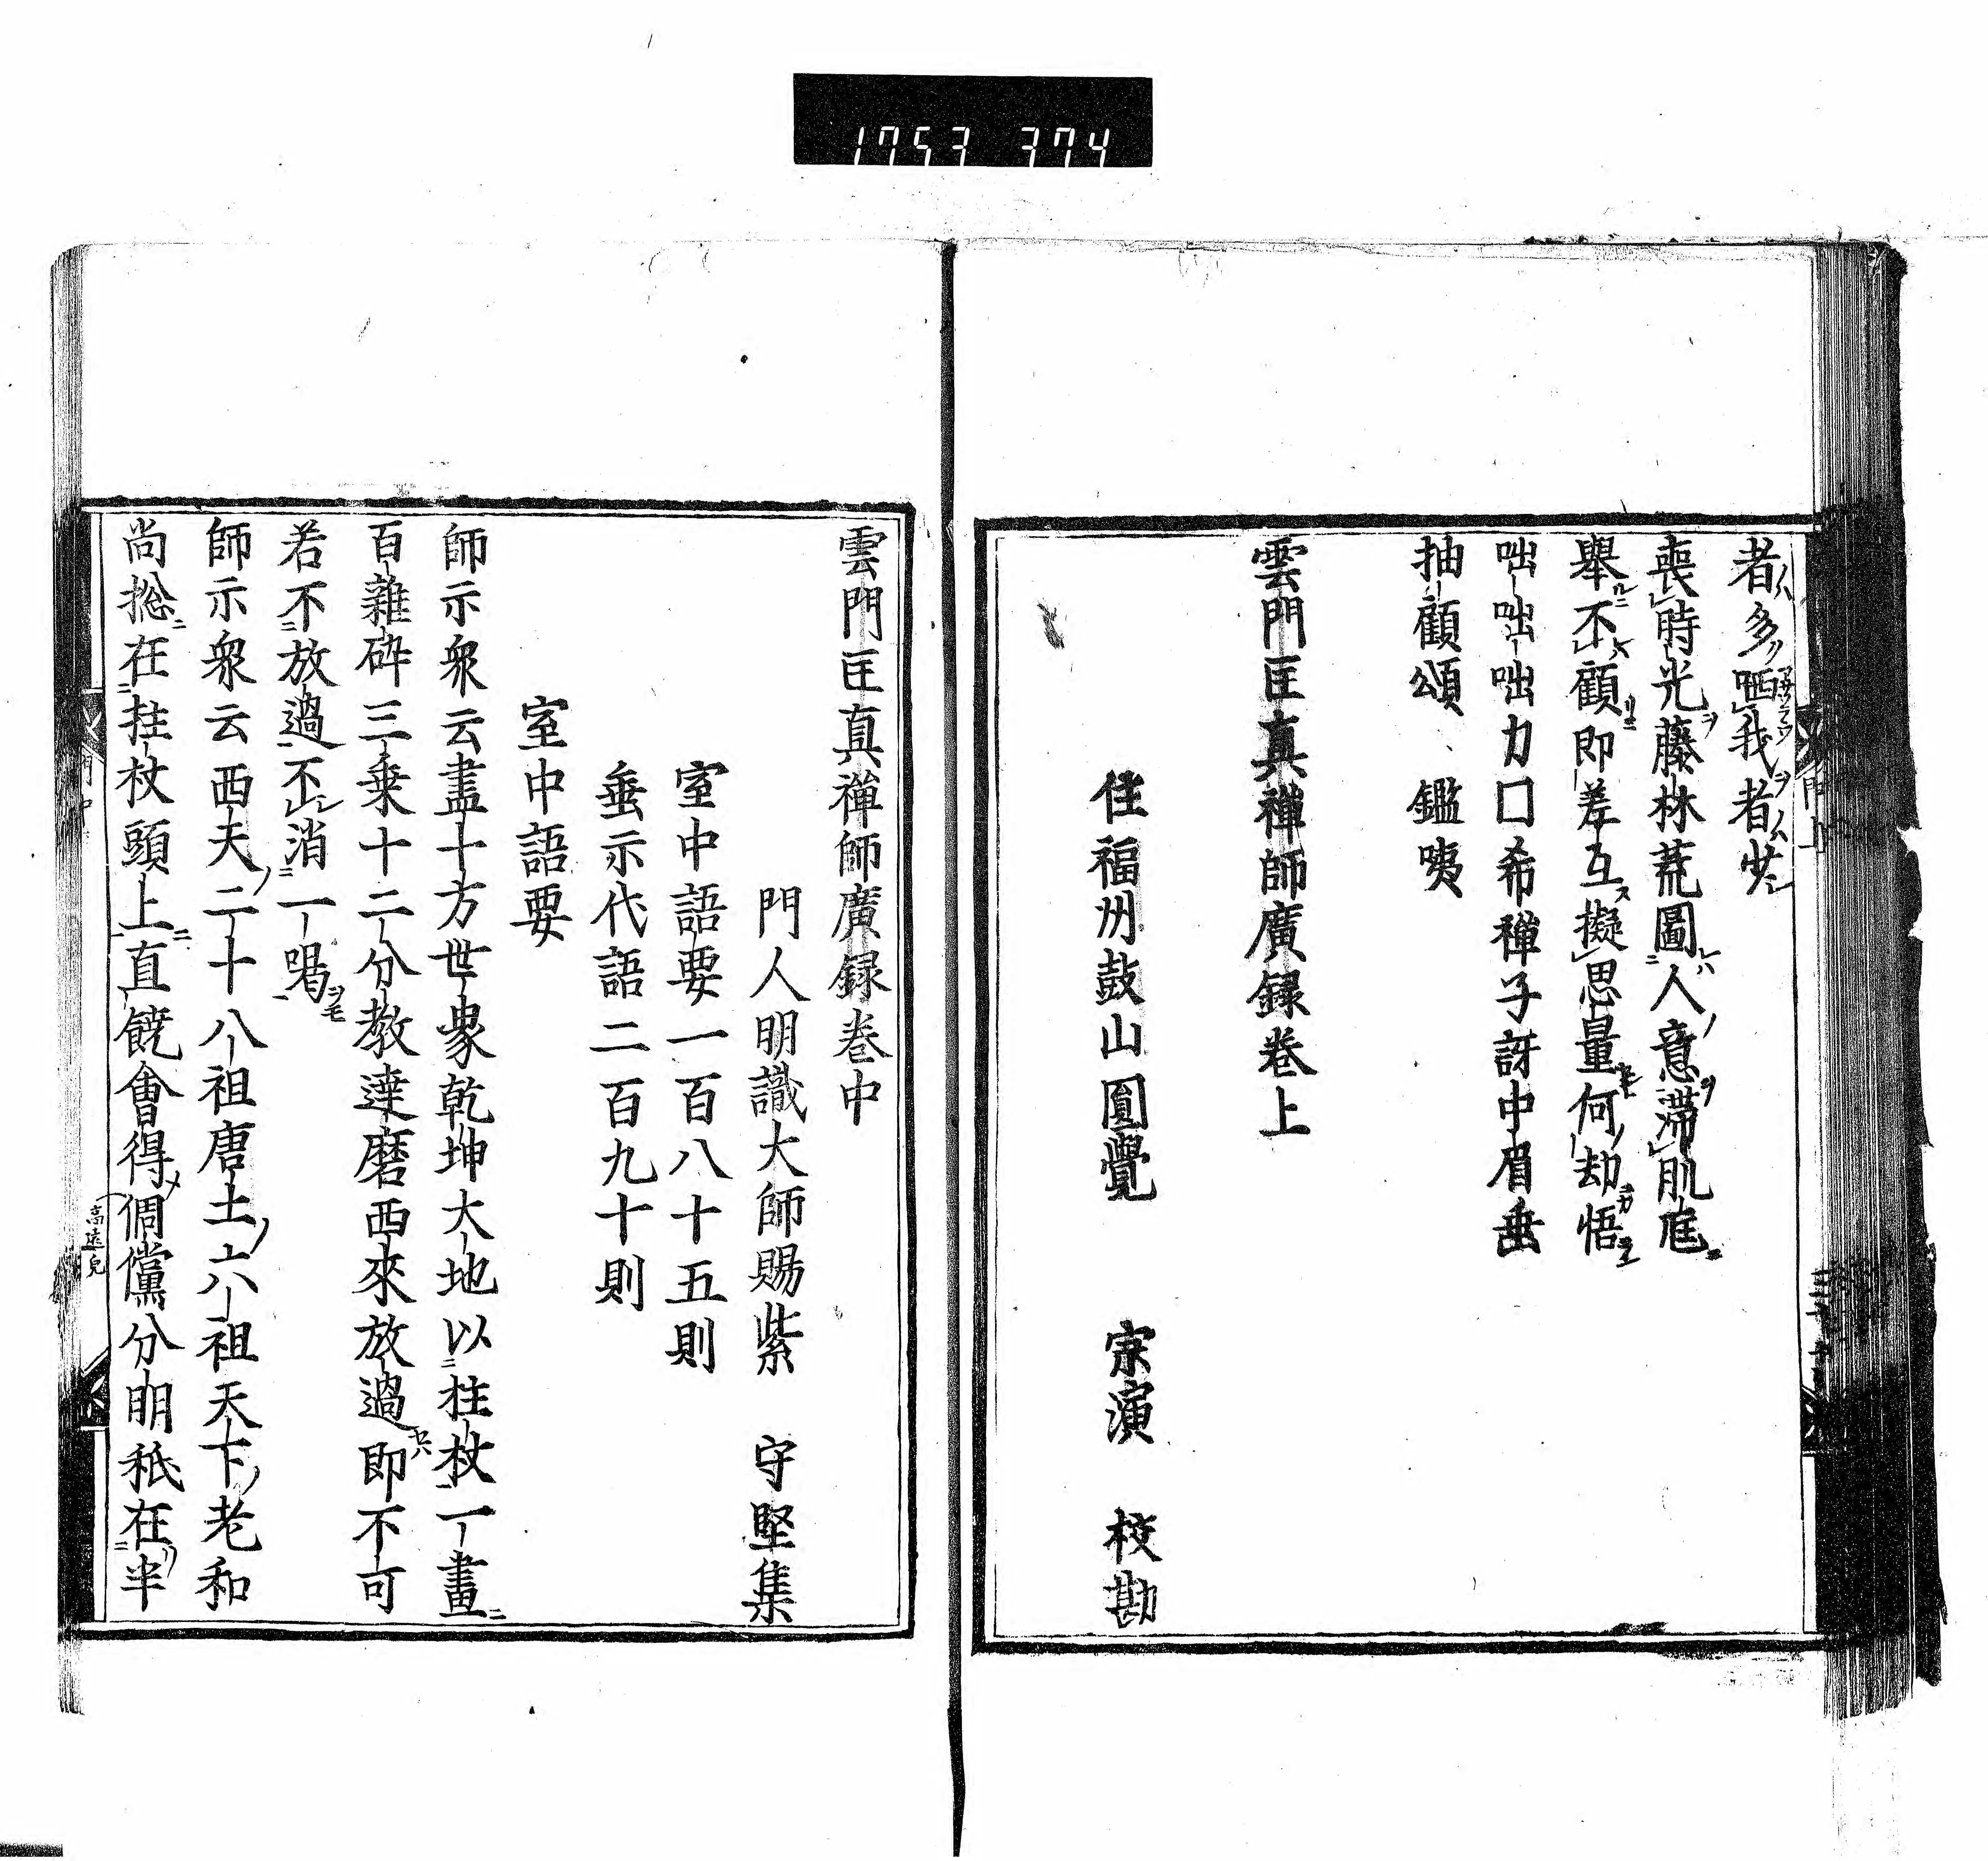 1753 374
者多哂我者少
喪時光藤林荒圖人意滯肌尫
舉不顧即差互擬思量何劫悟
咄咄咄力囗希禪子訝中眉垂
抽顧頌 鑑咦
雲門匡真禪師廣録卷上
住福州鼓山圓覺 宗演 校勘
雲門匡真禪師廣録卷中
門人明識大師賜紫 守堅集
室中語要一百八十五則
垂示代語二百九十則
室中語要
師示衆云盡十方世界乾坤大地以拄杖一畫
百雜碎三乗十二分教達磨西來放過即不可
若不放過不消一喝
師示衆云西天二十八祖唐土六祖天下老和
尚捴在拄杖頭上直饒會得倜儻分明秖在半
高遠皃